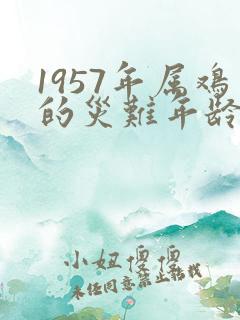 1957年属鸡
的灾难年龄
小妞傻傻
未经同意禁止转载